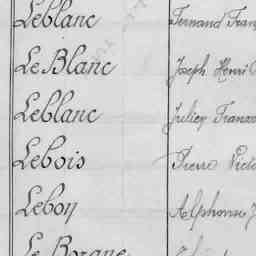 Leblanc Fernand Franç
Le Blanc Joseph Henri
Leblanc Julien
Lebois Pierre Victo
Lebon Alphonse J
Le Borgne